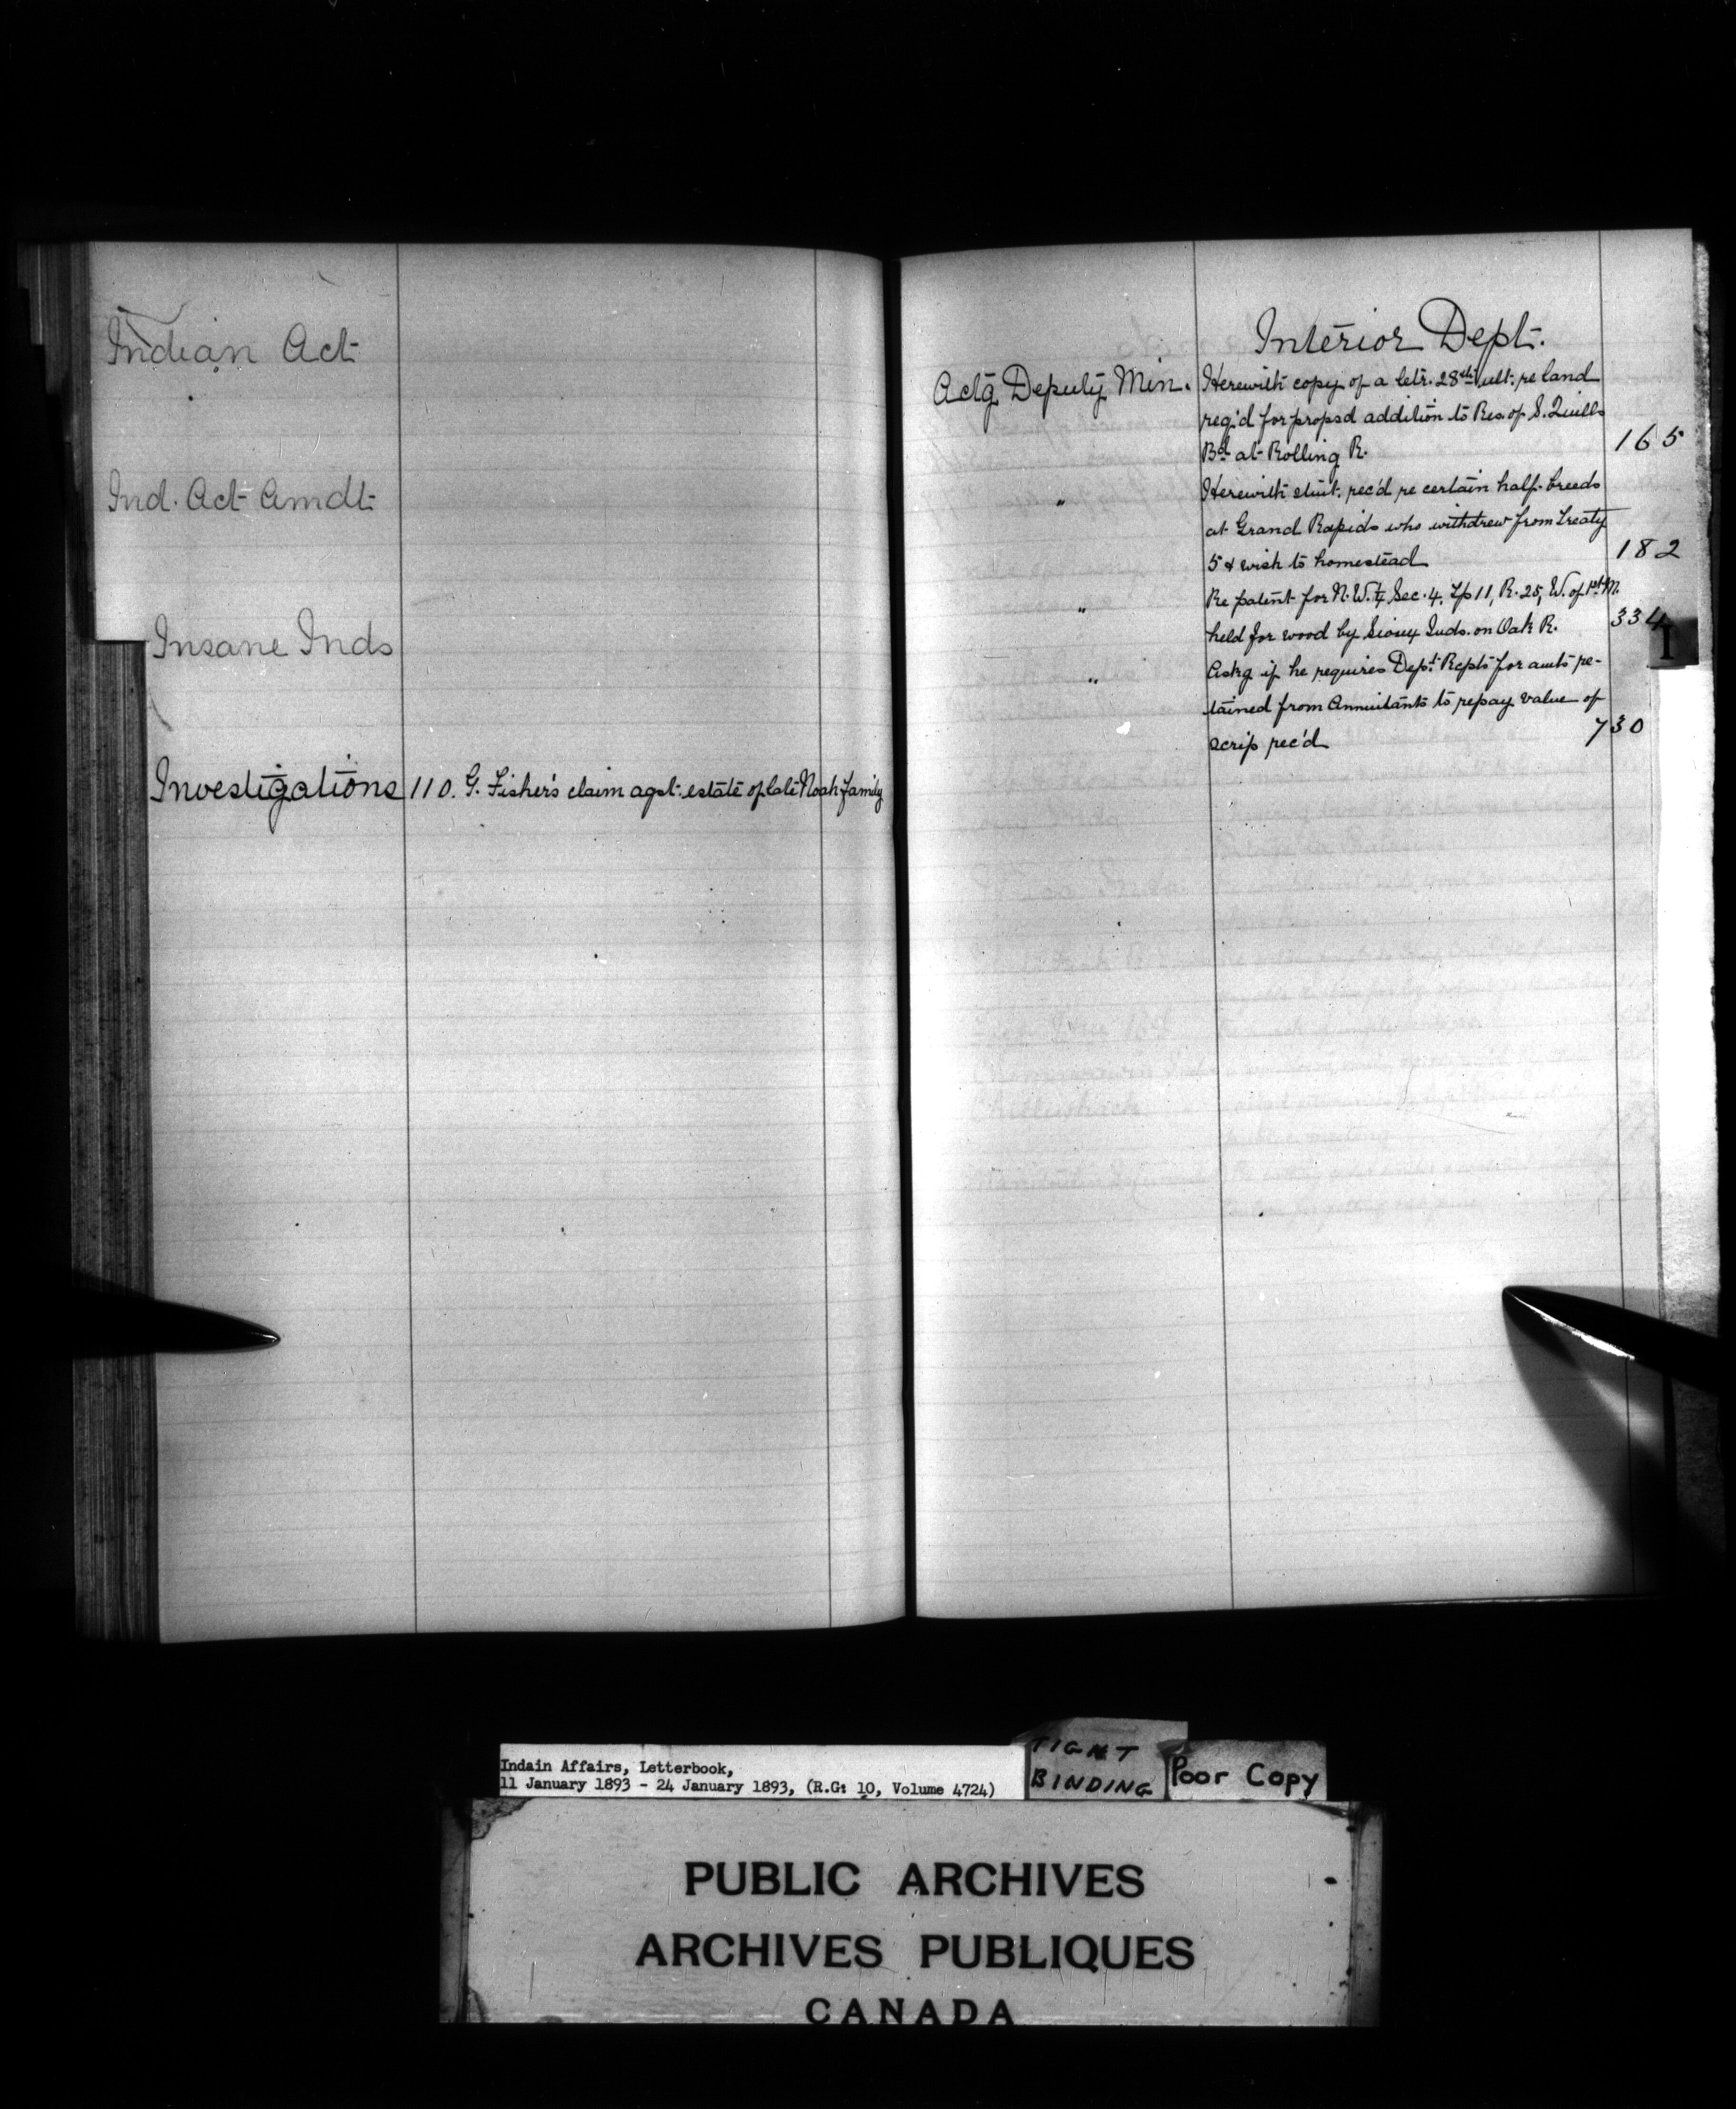 Indian Act
Ind. Act Amdt
Insane Inds
Investigations 110. G. Fisher's claim agst. estate of late Noah family
Interior Dept.
Actg Deputy Min. Herewith copy of a letr. 28th ult. re land
req'd for propsd addition to Res. of S. Quills
Bd at Rolling R. 165
" Herewith stmt. rec'd re certain half-breeds
at Grand Rapids who withdrew from Treaty
5 & wish to homestead 182
" Re patent for N.W.¼ Sec. 4, Tp 11, R. 25, W. of 1st M.
held for wood by Sioux Inds. on Oak R. 334
" Askg if he requires Dept. Rcpts for amts re-
tained from Annuitants to repay value of
scrip rec'd 730
I
Indain Affairs, Letterbook,
11 January 1893 - 24 January 1893, (R.G: 10, Volume 4724)
TIGHT
BINDING
Poor Copy
PUBLIC ARCHIVES
ARCHIVES PUBLIQUES
CANADA